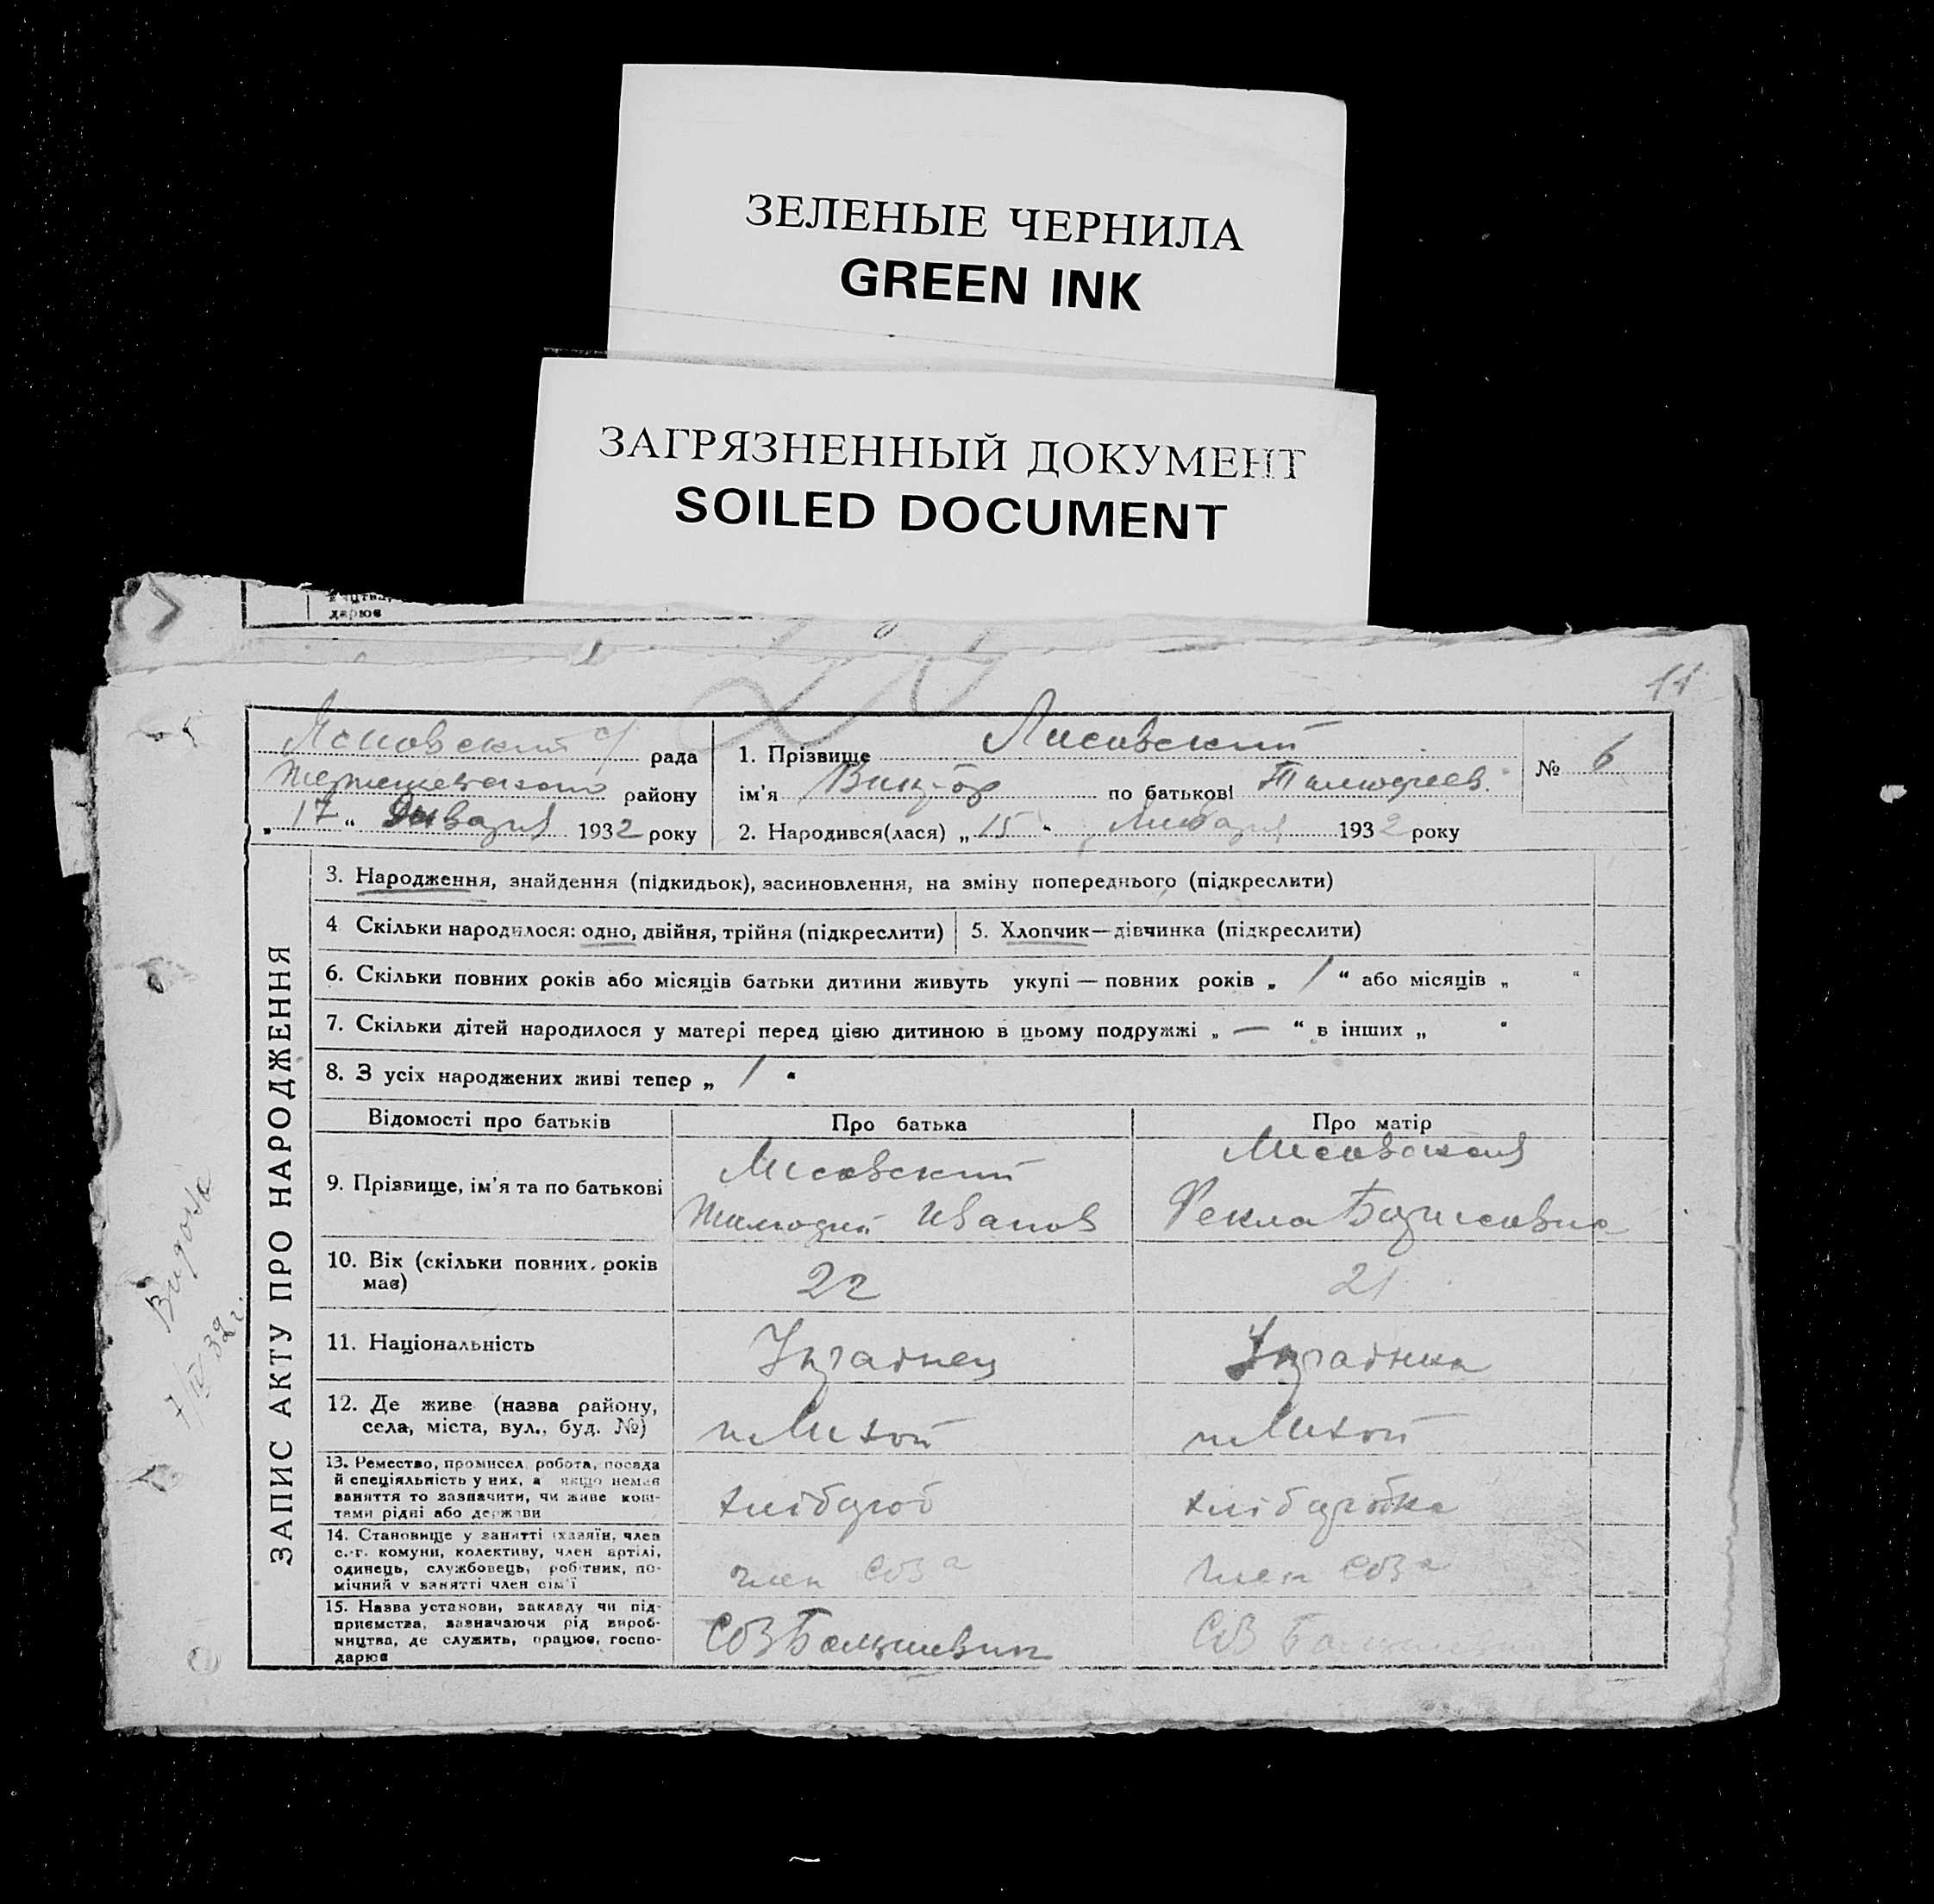 ЗЕЛЕНЫЕ ЧЕРНИЛА
GREEN INK
ЗАГРЯЗНЕННЫЙ ДОКУМЕНТ
SOILED DOCUMENT
дарює
11
рада
району
„ 17 “ Января 1932 року
1. Прізвище Лисовский
ім'я Виктор по батькові Тимофеев.
2. Народився(лася) „ 15 “ Января 1932 року
№ 6
ЗАПИС АКТУ ПРО НАРОДЖЕННЯ
3. Народження, знайдення (підкидьок), засиновлення, на зміну попереднього (підкреслити)
4 Скільки народилося: одно, двійня, трійня (підкреслити) 5. Хлопчик—дівчинка (підкреслити)
6. Скільки повних років або місяців батьки дитини живуть укупі — повних років „ 1 “ або місяців „ “
7. Скільки дітей народилося у матері перед цією дитиною в цьому подружжі „ — “ в інших „ “
8. З усіх народжених живі тепер „ 1 “
Відомості про батьків Про батька Про матір
9. Прізвище, ім'я та по батькові
Лисовский
Тимофій Иванов
Лисовская
Фекла Борисовна
10. Вік (скільки повних років
має)
22
21
11. Національність
Українец
Українка
12. Де живе (назва району,
села, міста, вул., буд. №)
13. Ремество, промисел, робота, посада
й спеціяльність у них, а якщо немає
заняття то зазначити, чи живе кош-
тами рідні або держави
хлібороб
хліборобка
14. Становище у занятті (хазяїн, член
с.-г. комуни, колективу, член артілі,
одинець, службовець, робітник, по-
мічний у занятті член сім'ї
член СОЗа
член СОЗа
15. Назва установи, закладу чи під-
приємства, зазначаючи рід вироб-
ництва, де служить, працює, госпо-
дарює
СОЗ Большевик
СОЗ
7/IV 32 г.